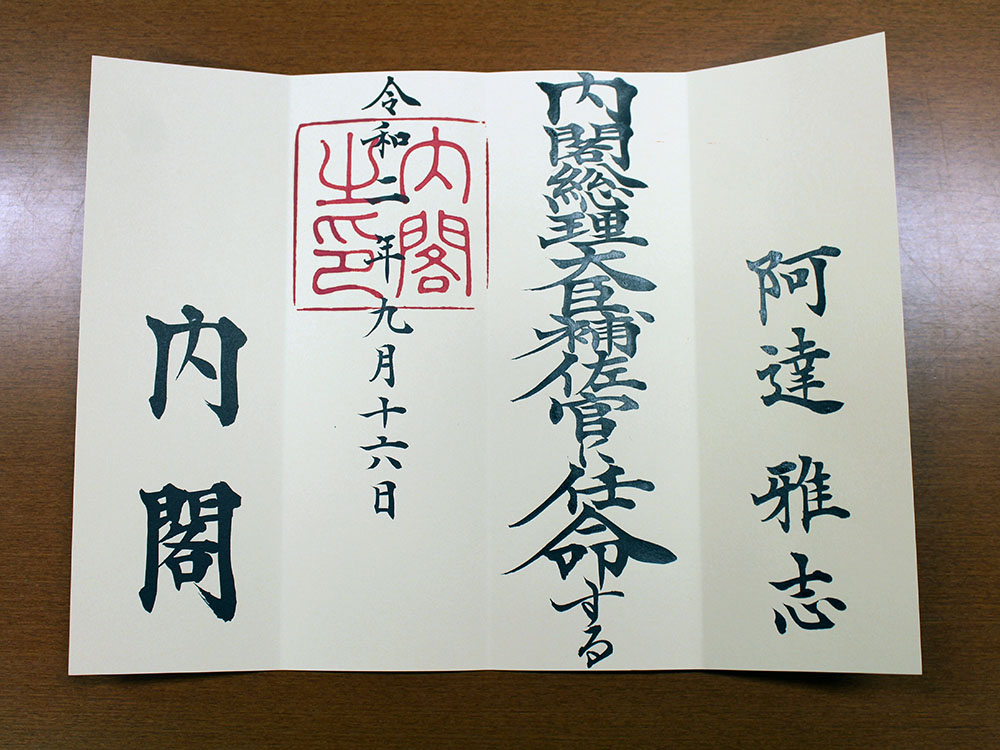 阿達雅志
内閣総理大臣補佐官に任命する
令和二年九月十六日
内閣之印
内閣